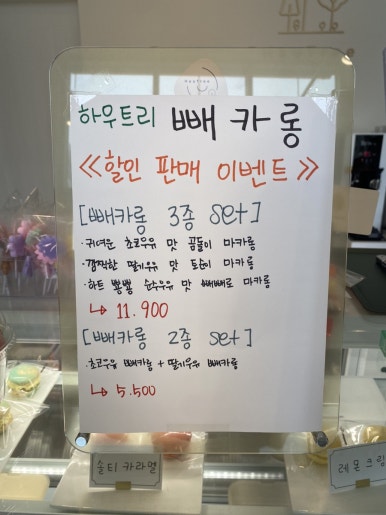 하우트리 빼카롱
<<할인 판매 이벤트>>
[빼카롱 3종 set]
·귀여운 초코우유 맛 곰돌이 마카롱
·깜찍한 딸기우유 맛 토순이 마카롱
·하트 뿅뿅 순수우유 맛 빼빼로 마카롱
↳ 11.900
[빼카롱 2종 set]
·초코우유 빼카롱 + 딸기우유 빼카롱
↳ 5.500
솔티 카라멜
레몬 크림